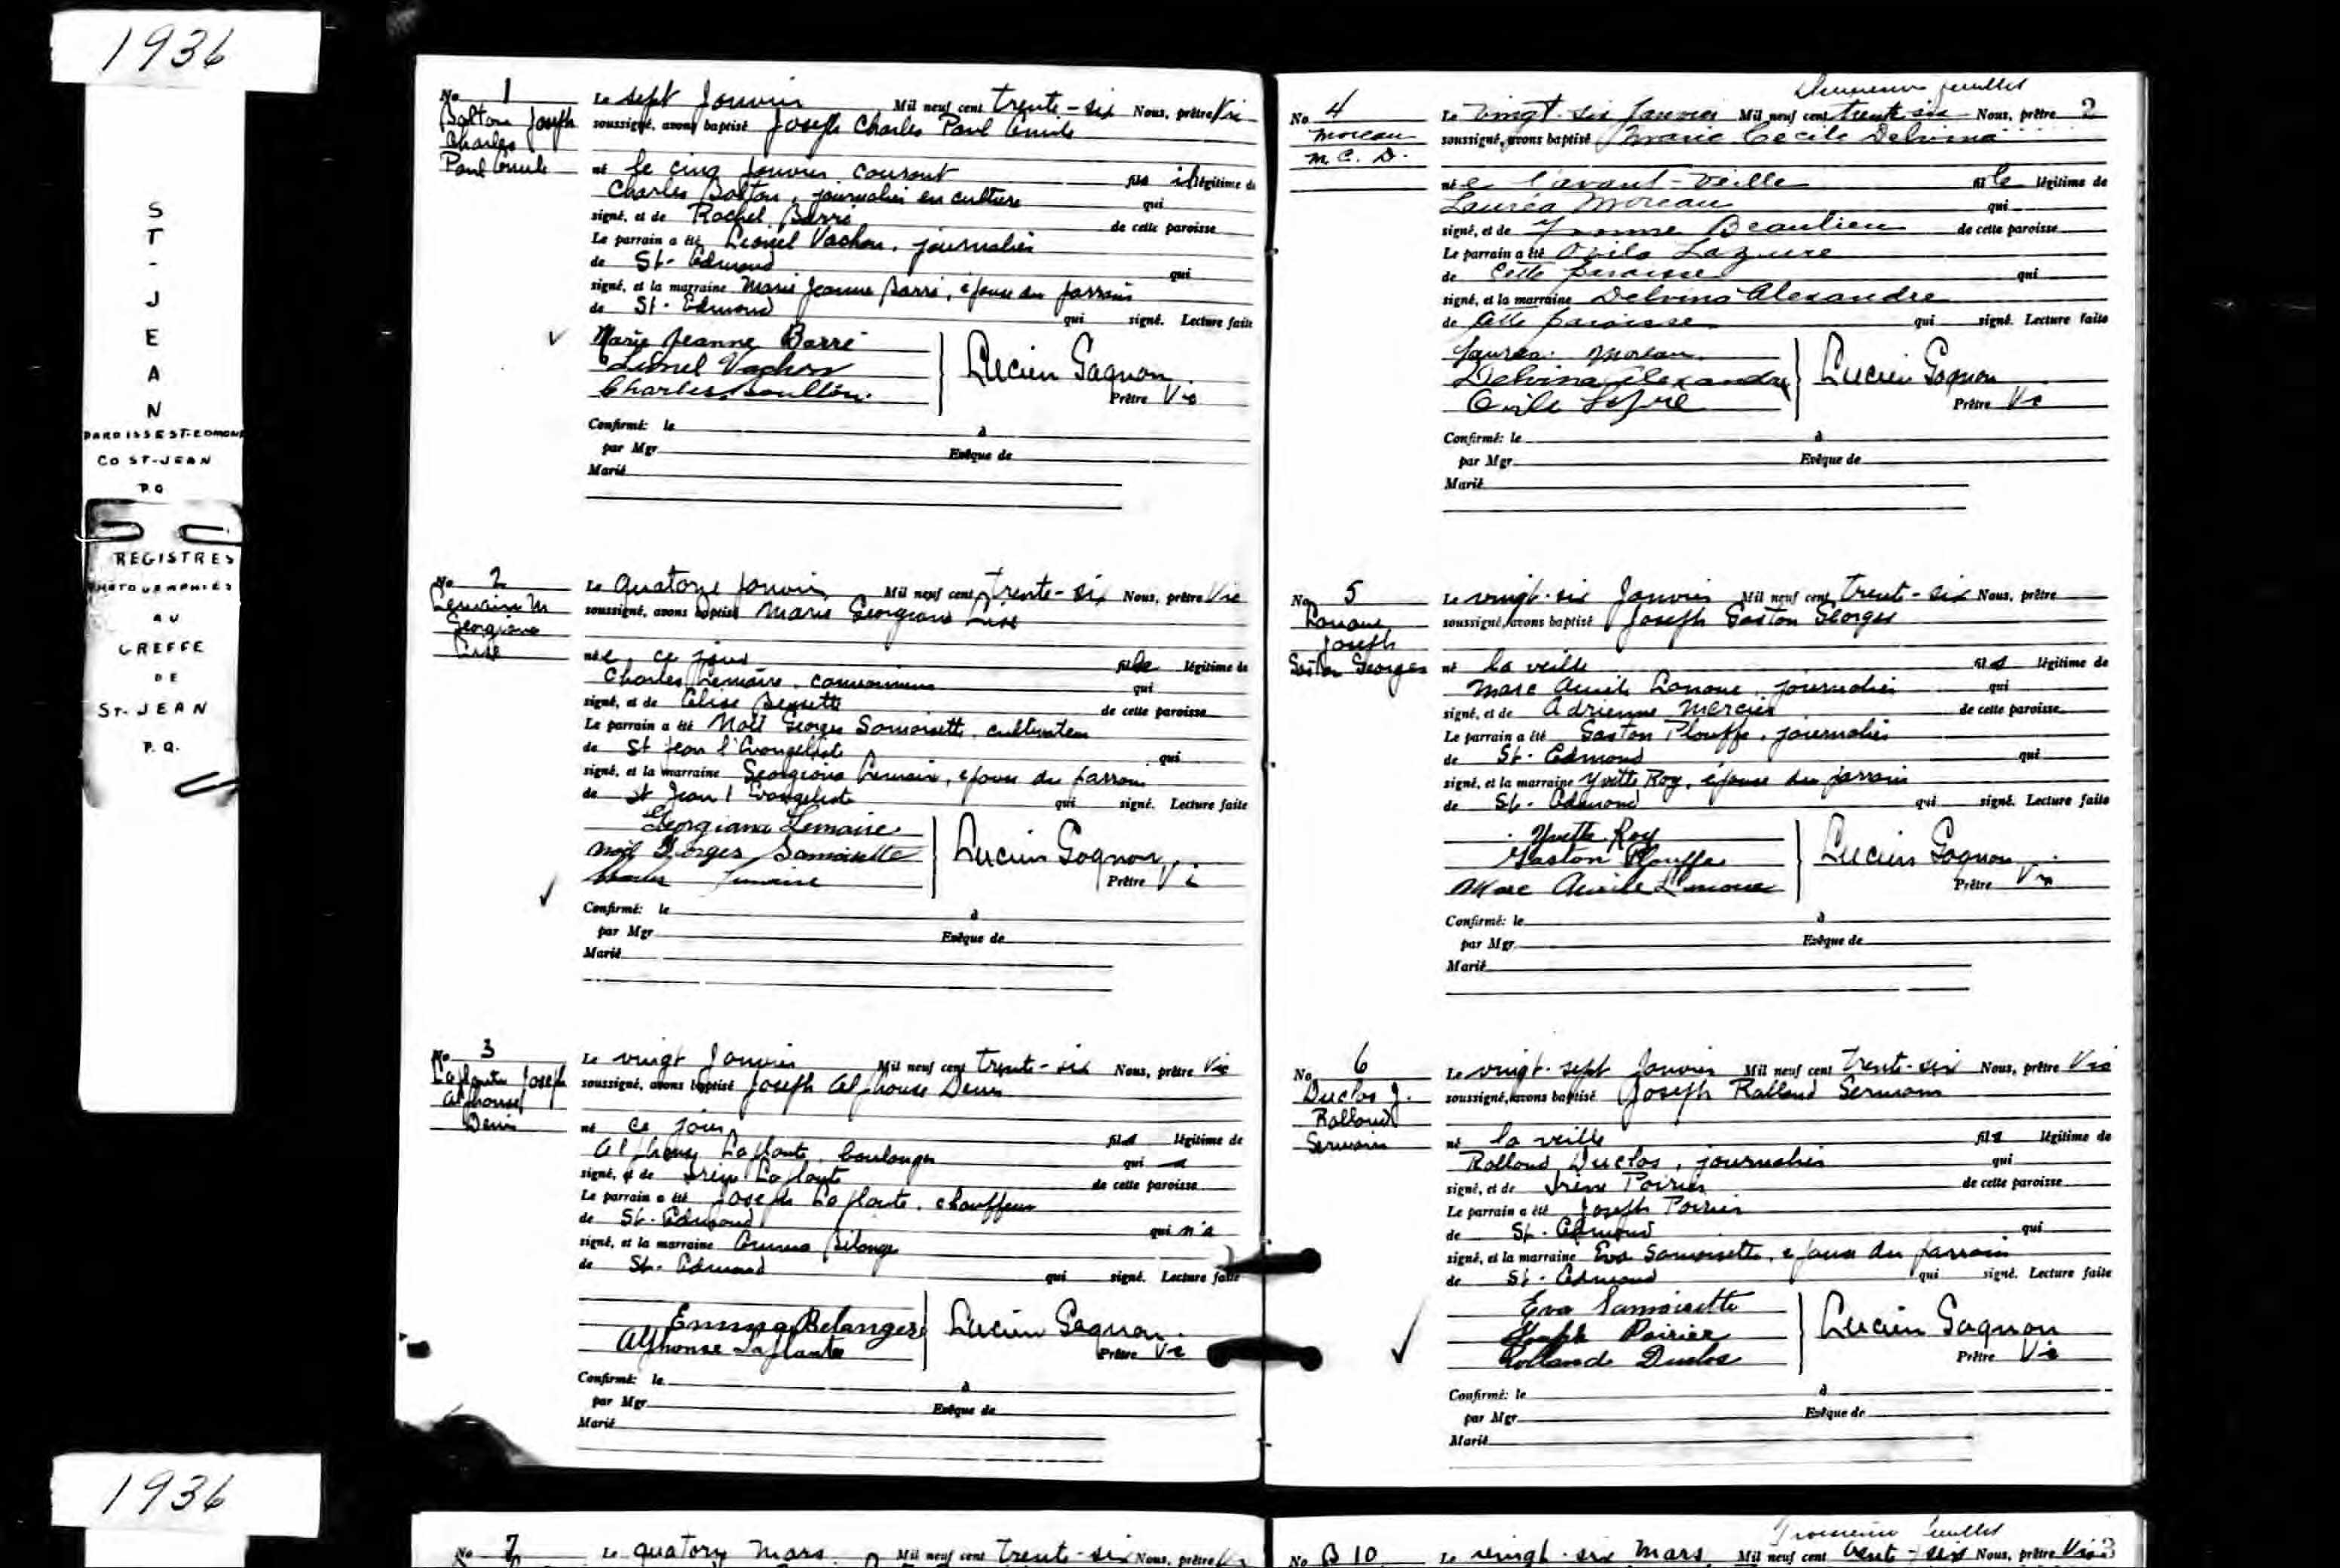 1936
ST-JEAN
PAROISSE ST-EDMOND
CO ST-JEAN
P.Q
REGISTRES
PHOTOGRAPHIÉS
AU
GREFFE
DE
ST-JEAN
P.Q.
1936
No 1
Bolton Joseph
Charles
Paul Emile
Le sept Janvier Mil neuf cent trente-six Nous, prêtre Vic
soussigné, avons baptisé Joseph Charles Paul Emile
né le cinq Janvier courant fils légitime de
Charles Bolton, journalier en culture qui
signé, et de Rachel Barré de cette paroisse
Le parrain a été Lionel Vachon, journalier
de St-Edmond qui
signé, et la marraine Marie Jeanne Barré, épouse du parrain
de St-Edmond qui signé. Lecture faite
Marie Jeanne Barré
Lionel Vachon
Charles
Lucien Gagnon
Prêtre Vic
Confirmé: le à
par Mgr Evêque de
Marié
No 2
Lemaire M
Georgiana
Lise
Le quatorze Janvier Mil neuf cent trente-six Nous, prêtre Vic
soussigné, avons baptisé Marie Georgiana Lise
née ce jour fille légitime de
Charles Lemaire, qui
signé, et de Elise Bessette de cette paroisse
Le parrain a été Noël Georges Samoisette, cultivateur
de St Jean l'Evangeliste qui
signé, et la marraine Georgiana Lemaire, épouse du parrain
de St Jean l'Evangeliste qui signé. Lecture faite
Georgiana Lemaire
Noël Georges Samoisette
Lemaire
Lucien Gagnon
Prêtre Vic
Confirmé: le à
par Mgr Evêque de
Marié
No 3
Laplante Joseph
Alphonse
Denis
Le vingt Janvier Mil neuf cent trente-six Nous, prêtre Vic
soussigné, avons baptisé Joseph Alphonse Denis
né ce jour fils légitime de
Alphonse Laplante, boulanger qui a
signé, et de Irène Laplante de cette paroisse
Le parrain a été Joseph Laplante, chauffeur
de St-Edmond qui n'a
signé, et la marraine Emma Bélanger
de St-Edmond qui signé. Lecture faite
Emma Belanger
Alphonse Laplante
Lucien Gagnon
Prêtre Vic
Confirmé: le à
par Mgr Evêque de
Marié
Deuxième feuillet
2
No 4
Moreau
M. C. D.
Le vingt-six Janvier Mil neuf cent trente-six Nous, prêtre
soussigné, avons baptisé Marie Cecile Delvina
née l'avant-veille fille légitime de
Lauréa Moreau qui
signé, et de Yvonne Beaulieu de cette paroisse
Le parrain a été Ovila Lazure
de cette paroisse qui
signé, et la marraine Delvina Alexandre
de cette paroisse qui signé. Lecture faite
Lauréa Moreau
Delvina Alexandre
Lucien Gagnon
Prêtre Vic
Confirmé: le à
par Mgr Evêque de
Marié
No 5
Joseph
Gaston Georges
Le vingt-six Janvier Mil neuf cent trente-six Nous, prêtre
soussigné, avons baptisé Joseph Gaston Georges
né la veille fils légitime de
Marc Aurile journalier qui
signé, et de Adrienne Mercier de cette paroisse
Le parrain a été Gaston Plouffe, journalier
de St-Edmond qui
signé, et la marraine Yvette Roy, épouse du parrain
de St-Edmond qui signé. Lecture faite
Yvette Roy
Gaston Plouffe
Marc Aurile
Lucien Gagnon
Prêtre Vic
Confirmé: le à
par Mgr Evêque de
Marié
No 6
Duclos J.
Rolland
Germain
Le vingt-sept Janvier Mil neuf cent trente-six Nous, prêtre Vic
soussigné, avons baptisé Joseph Rolland Germain
né la veille fils légitime de
Rolland Duclos, journalier qui
signé, et de Irène Poirier de cette paroisse
Le parrain a été Joseph Poirier
de St-Edmond qui
signé, et la marraine Eva Samoisette, épouse du parrain
de St-Edmond qui signé. Lecture faite
Eva Samoisette
Joseph Poirier
Rolland Duclos
Lucien Gagnon
Prêtre Vic
Confirmé: le à
par Mgr Evêque de
Marié
No 7
Le quatorze Mars Mil neuf cent trente-six Nous, prêtre
Troisième feuillet
3
No B 10
Le vingt-six Mars Mil neuf cent trente-six Nous, prêtre Vic